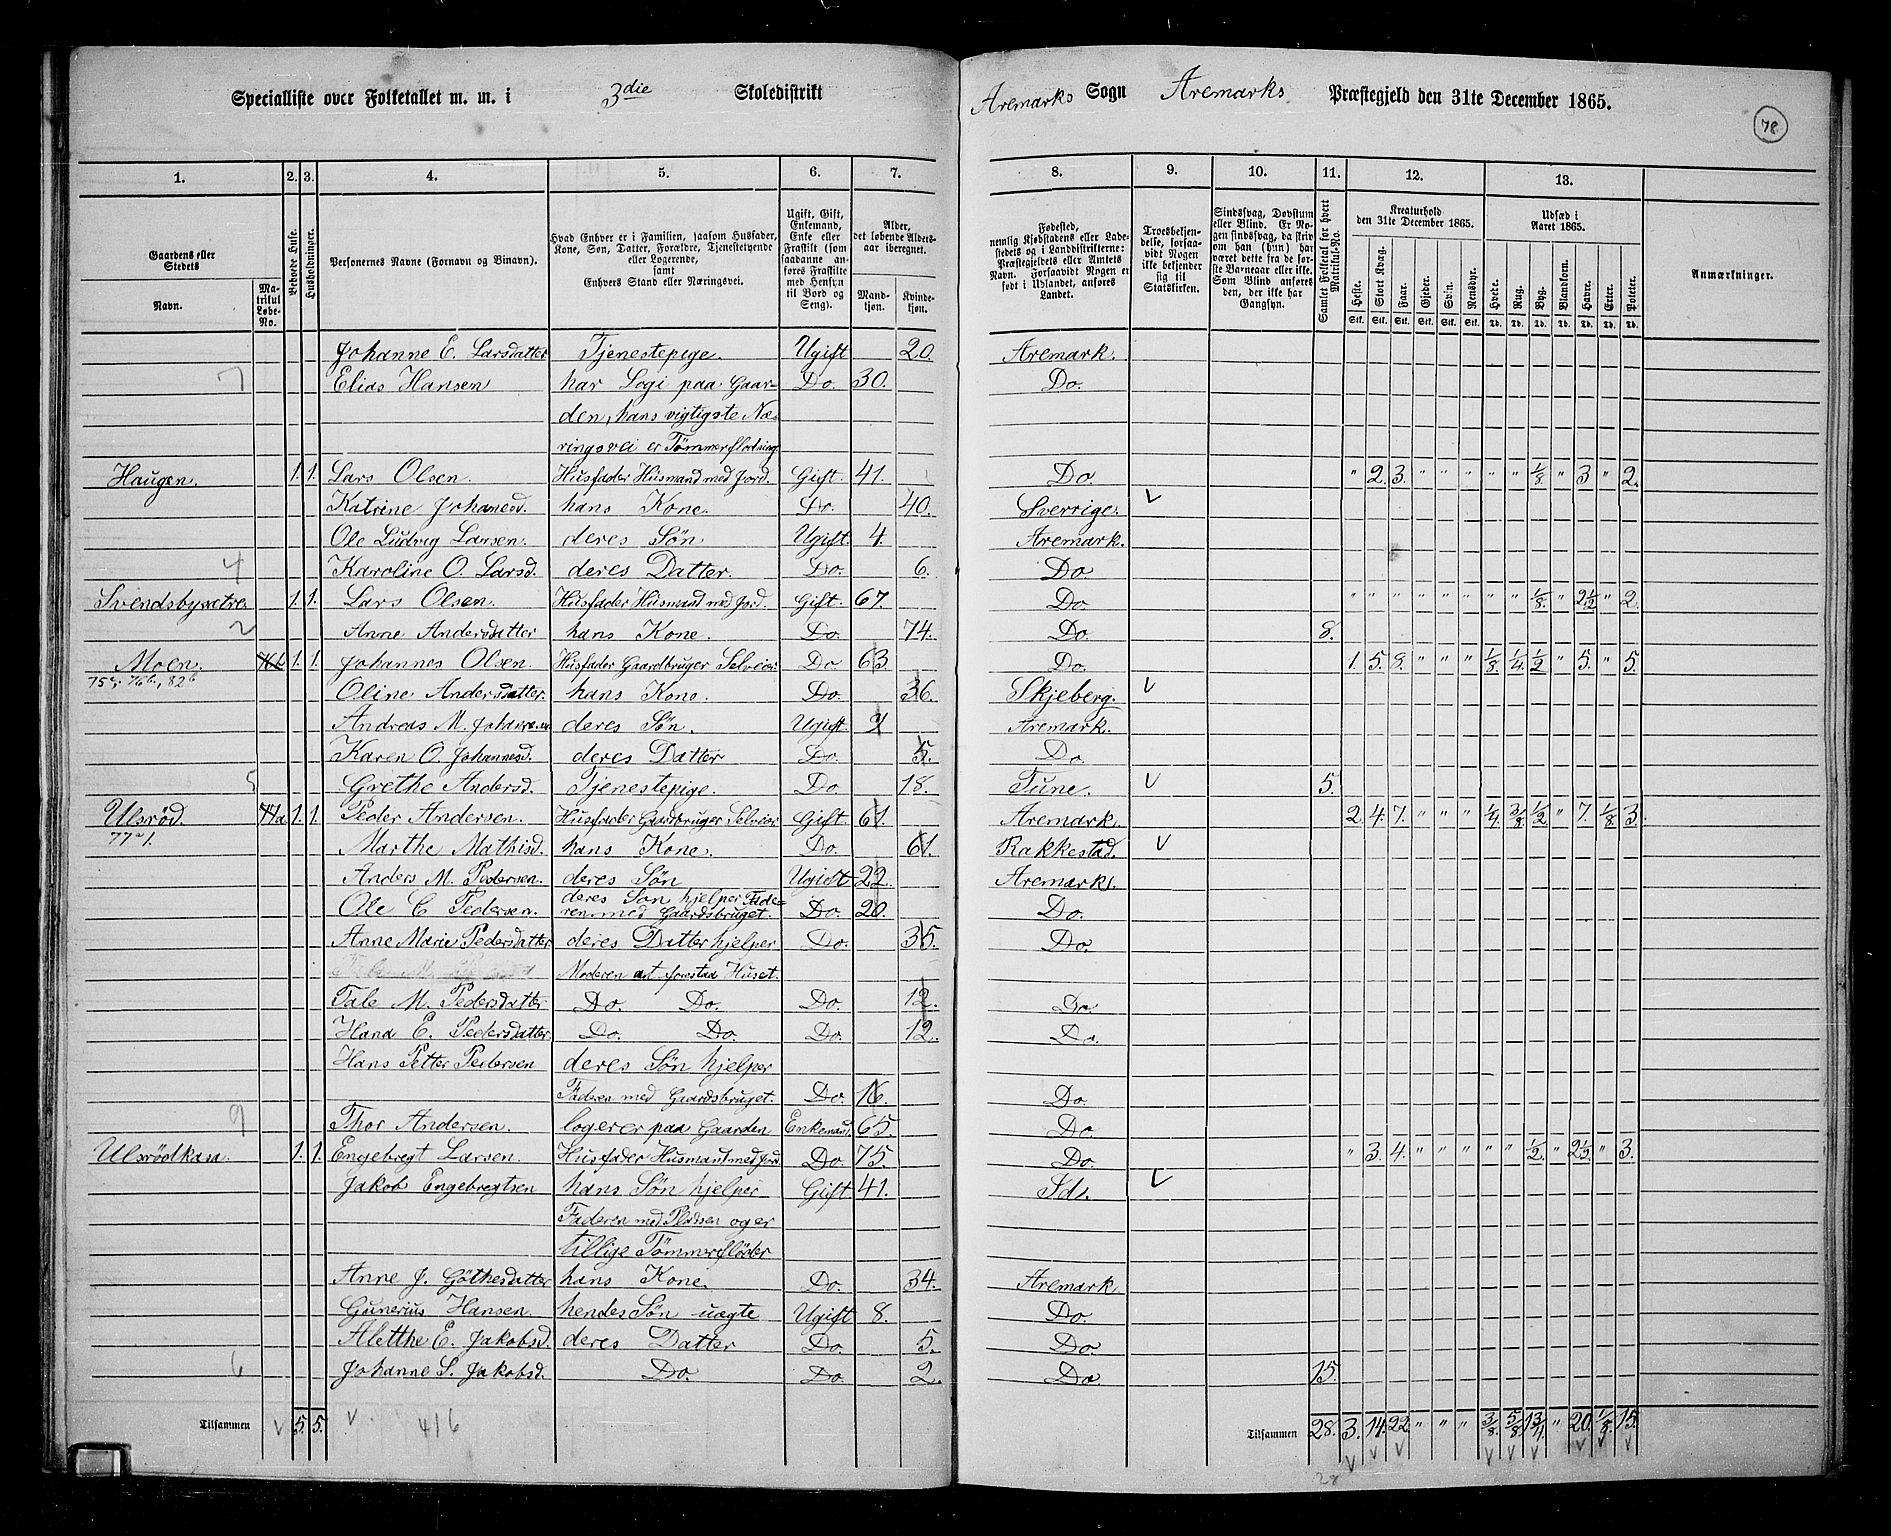 Specialliste over Folketallet m. m. i 3die Skoledistrikt Aremarks Sogn Aremarks Præstegjeld den 31te December 1865.
78
1. 2. 3. 4. 5. 6. 7. 8. 9. 10. 11. 12. 13.
Gaardens eller Stedets
Navn.
Matrikul Løbe-No.
Beboede Huse.
Husholdninger.
Personernes Navne (Fornavn og Binavn).
Hvad Enhver er i Familien, saasom Husfader, Kone, Søn, Datter, Forældre, Tjenestetyende eller Logerende, samt Enhvers Stand eller Næringsvei.
Ugift, Gift, Enkemand, Enke eller Fraskilt (som saadanne anføres Fraskilte med Hensyn til Bord og Seng).
Alder, det løbende Aldersaar iberegnet.
Mandkjøn. Kvindekjøn.
Fødested, nemlig Kjøbstadens eller Ladestedets og i Landdistrikterne: Præstegjeldets eller Amtets Navn. Forsaavidt Nogen er født i Udlandet, anføres Landet.
Troesbekjendelse, forsaavidt Nogen ikke bekjender sig til Statskirken.
Sindssvag, Døvstum eller Blind. Er Nogen sindssvag, da skrives om han (hun) har været dette fra de første Barneaar eller ikke. Som Blind anføres den, der ikke har Gangsyn.
Samlet Folketal for hvert Matrikul-No.
Kreaturhold den 31te December 1865.
Heste. Stort Kvæg. Faar. Gjeder. Svin. Rensdyr.
Udsæd i Aaret 1865.
Hvede. Rug. Byg. Blandkorn. Havre. Erter. Poteter.
Stk. Stk. Stk. Stk. Stk. Stk. Td. Td. Td. Td. Td. Td. Td.
Anmærkninger.
Johanne E. Larsdatter Tjenestepige. Ugift 20. Aremark.
7 Elias Hansen har Logi paa Gaar- Do. 30. Do.
den, hans vigtigste Næ-
ringsvei er Tømmerflødning
Haugen. 1. 1. Lars Olsen. Husfader Husmand med Jord. Gift. 41. Do. " 2. 3. " " " " " 1/8. " 3 " 2.
Katrine Johanesd. hans Kone. Do. 40. Sverrige. V
Ole Ludvig Larsen. deres Søn Ugift. 4. Aremark.
4 Karoline O. Larsd. deres Datter. Do. 6. Do.
Svendsbysætre. 1. 1. Lars Olsen. Husfader Husmand med Jord. Gift. 67. Do. " " " " " " " " 1/8. " 2 1/2 " 2
2 Anne Andersdatter hans Kone. Do. 74. Do. 8.
Moen. 1. 1. Johannes Olsen. Husfader Gaardbruger Selveier Do 63 Do. 1. 5. 8. " " " 1/8 1/4 1/2 " 5. " 5.
75, 76b, 82b
Oline Andersdatter. hans Kone. Do. 36. Skjeberg. V
Andreas M. Johannesen deres Søn. Ugift. Aremark.
Karen O. Johannesd. deres Datter Do. 5. Do.
5 Grethe Andersd. Tjenestepige. Do. 18. Tune. V 5.
Ulsrød. 77a 1. 1. Peder Andersen. Husfader Gaardbruger Selveier Gift. 61. Aremark. 2. 4. 7. " " " 1/4 3/8 1/2 " 7. 1/8 3.
77a 1.
Marthe Mathisd. hans Kone. Do. 61. Rakkestad. V
Anders M. Pedersen. deres Søn Ugift 22. Aremark.
Ole C. Pedersen. deres Søn hjelper Fade-
ren med Gaardsbruget. Do. 20. Do.
Anne Marie Pedersdatter deres Datter hjelper Do. 35. Do.
Moderen at forestaa Huset.
Tale M. Pedersdatter Do. Do. Do. 12. Do
Hana E. Pedersdatter. Do. Do. Do. 12. Do.
Hans Petter Pedersen deres Søn hjelper
Faderen med Gaardsbruget. Do. 16. Do.
9 Thor Andersen. logerer paa Gaarden Enkemand. 65. Do.
Ulsrødkasa 1. 1. Engebregt Larsen. Husfader Husmand med Jord Do. 75. Do. " 3. 4. " " " " " 1/2 " 2 1/2. " 3.
Jakob Engebregtsen hans Søn hjelper Gift 41. Id. V
Faderen med Pladsen og er
tillige Tømmerfløder
Anne J. Göthesdatter hans Kone. Do. 34. Aremark
Gunerius Hansen. hendes Søn uægte Ugift 8. Do.
Aletthe E. Jakobsd. deres Datter Do. 5. Do.
6 Johanne S. Jakobsd. Do. Do. 2. Do. 15.
Tilsammen V 5. 5. V 416 Tilsammen 28. 3. 14. 22. " " " 3/8. 5/8 1 3/4 " 20. 1/8 15.
V V V V V V V V V
28